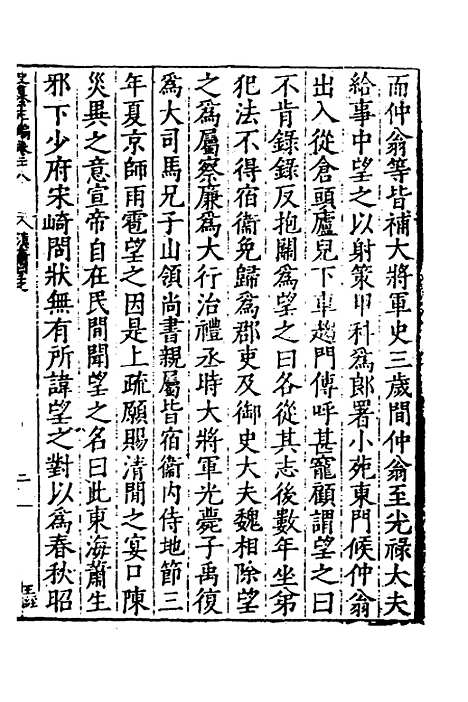 而仲翁等皆補大將軍史三歲間仲翁至光祿大夫
給事中望之以射策甲科爲郎署小苑東門候仲翁
出入從倉頭廬兒下車趨門傳呼甚寵顧謂望之曰
不肯錄錄反抱關爲望之曰各從其志後數年坐弟
犯法不得宿衞免歸爲郡吏及御史大夫魏相除望
之爲屬察廉爲大行治禮丞時大將軍光薨子禹復
爲大司馬兄子山領尚書親屬皆宿衞內侍地節三
年夏京師雨雹望之因是上疏願賜清閒之宴口陳
災異之意宣帝自在民閒聞望之名曰此東海蕭生
邪下少府宋畸問狀無有所諱望之對以爲春秋昭